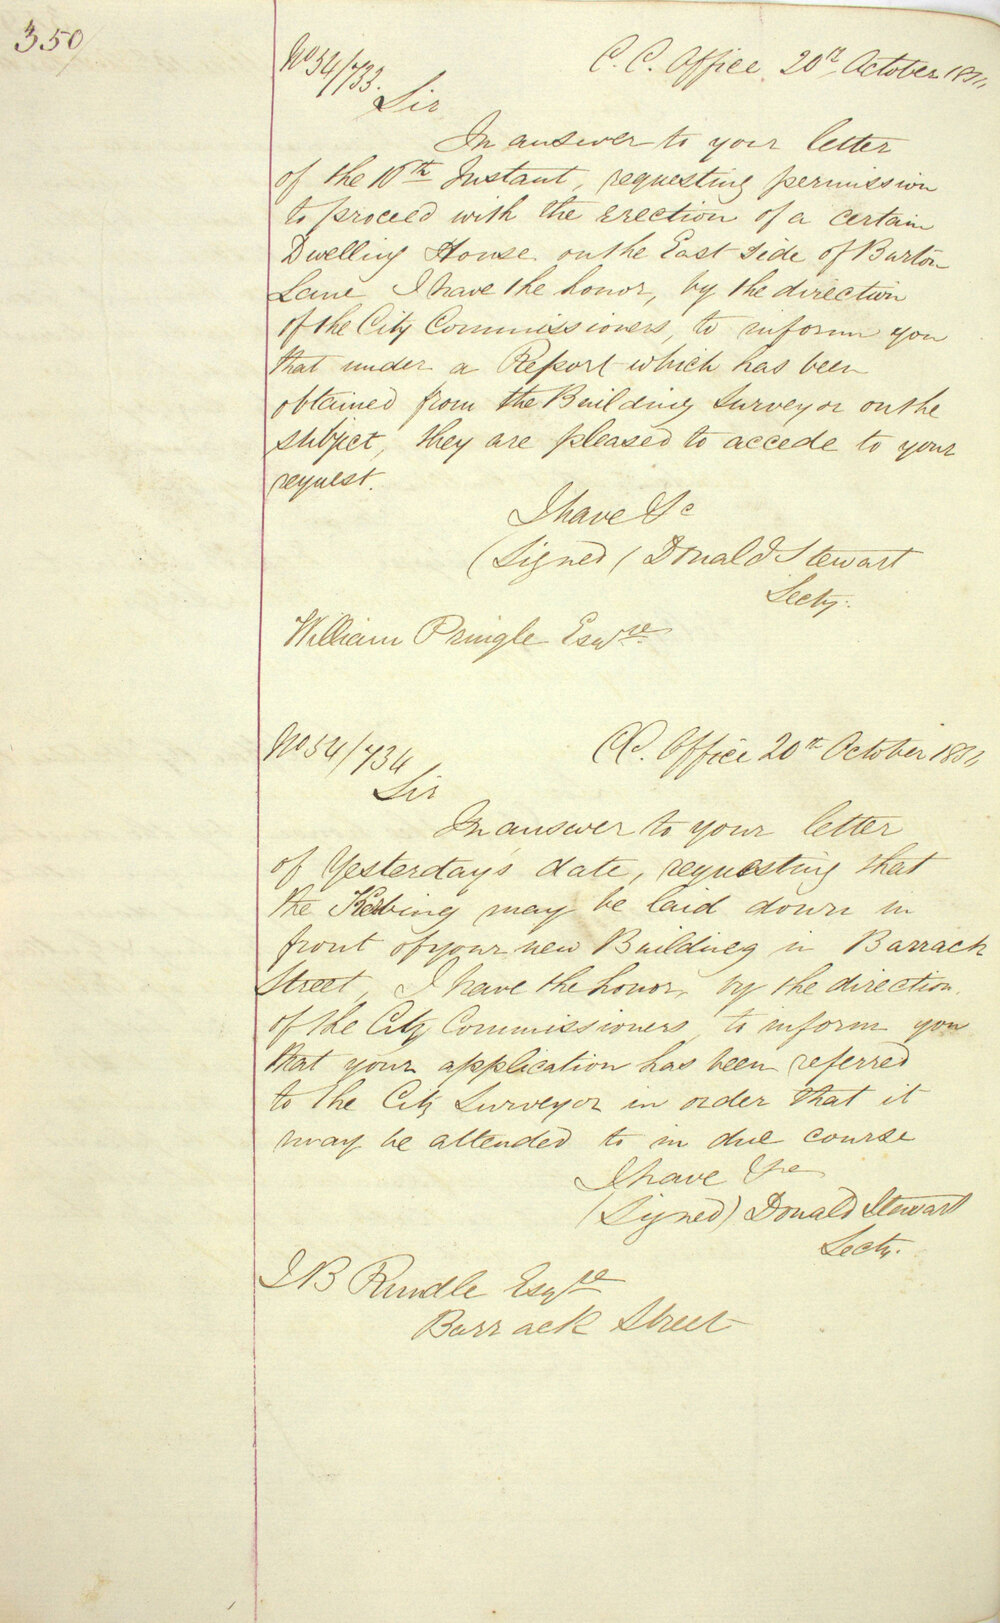 350/
No 54/733.
C. C. Office 20th October 1854
Sir
In answer to your letter
of the 16th Instant, requesting permission
to proceed with the erection of a certain
Dwelling House on the East side of Burton
Lane I have the honor, by the direction
of the City Commissioners, to inform you
that under a Report which has been
obtained from the Building Surveyor on the
subject, they are pleased to accede to your
request.
I have &c
(Signed) Donald Stewart
Secty.
William Pringle Esqre
No 54/734
C.C. Office 20th October 1854
Sir
In answer to your letter
of Yesterday's date, requesting that
the Kerbing may be laid down in
front of your new Building in Barrack
Street, I have the honor, by the direction
of the City Commissioners, to inform you
that your application has been referred
to the City Surveyor in order that it
may be attended to in due course
I have &c
(Signed) Donald Stewart
Secty.
J B Rundle Esqre
Barrack Street